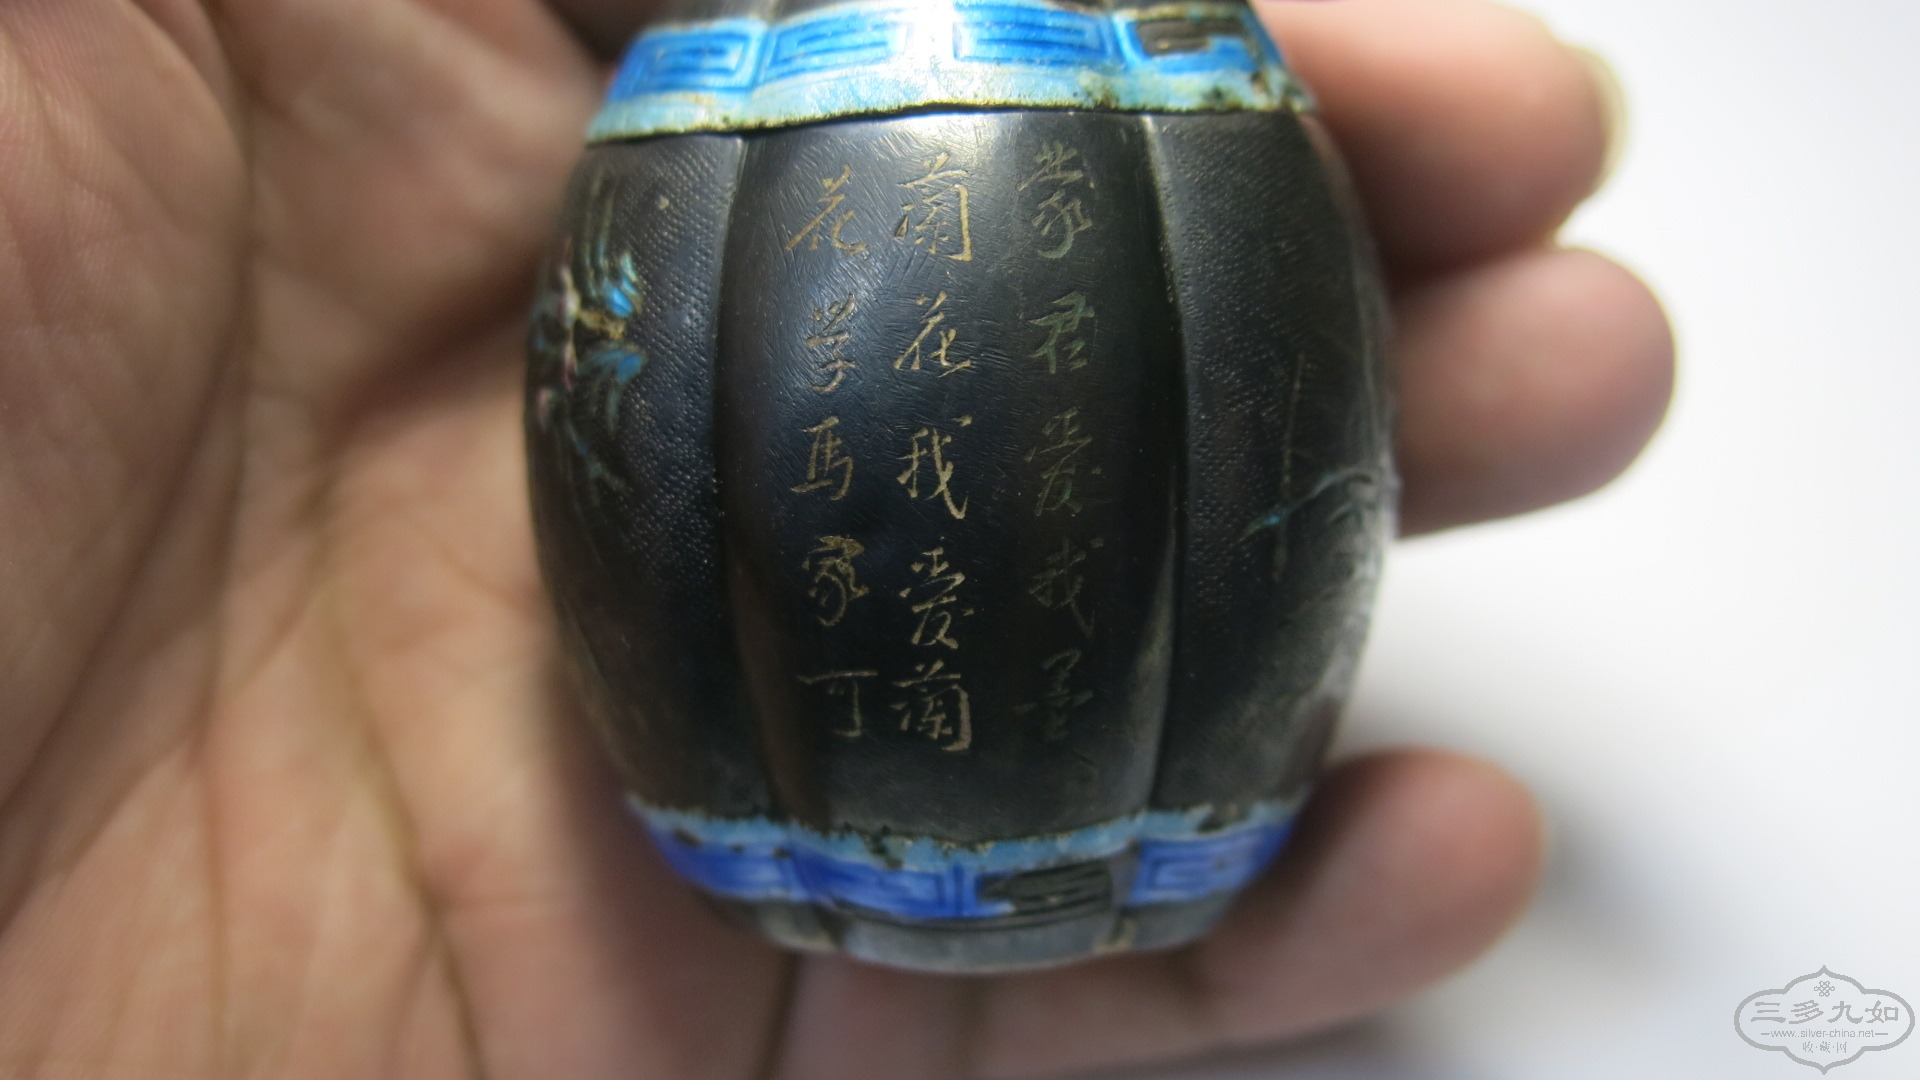 蒙君愛我墨
蘭花我愛蘭
花学馬家可
三多九如
www.silver-china.net
收·藏·网